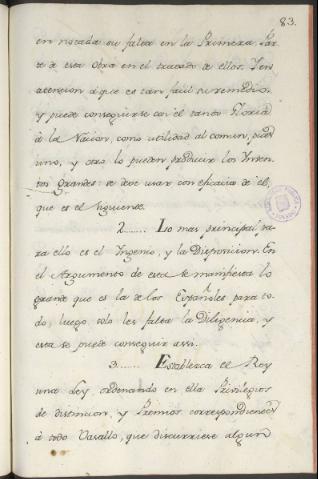 83.
en notada su falta en la Primera Par
te a esta Obra en el tratado de ellos. Y en
atencion a que es tan facil su remedio,
y puede conseguirse con el tanto Gloria
à la Nacion, como utilidad al comun, pues
uno, y otro lo pueden producir los Inven
tos grandes se debe usar con eficacia de el,
que es el siguiente.
2....... Lo mas principal pa
ra ello es el Ingenio, y la Disposicion. En
el Argumento de esta se manifiesta lo
grande que es la de los Españoles para to
do, luego solo les falta la Diligencia, y
esta se puede conseguir assi.
3....... Establezca el Rey
una Ley, ordenando en ella Privilegios
de distincion, y Premios correspondientes
à todo Vasallo, que discurriese algun